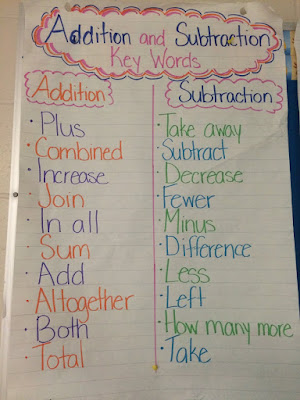 Addition and Subtraction
Key Words
Addition
· Plus
· Combined
· Increase
· Join
· In all
· Sum
· Add
· Altogether
· Both
· Total
Subtraction
· Take away
· Subtract
· Decrease
· Fewer
· Minus
· Difference
· Less
· Left
· How many more
· Take